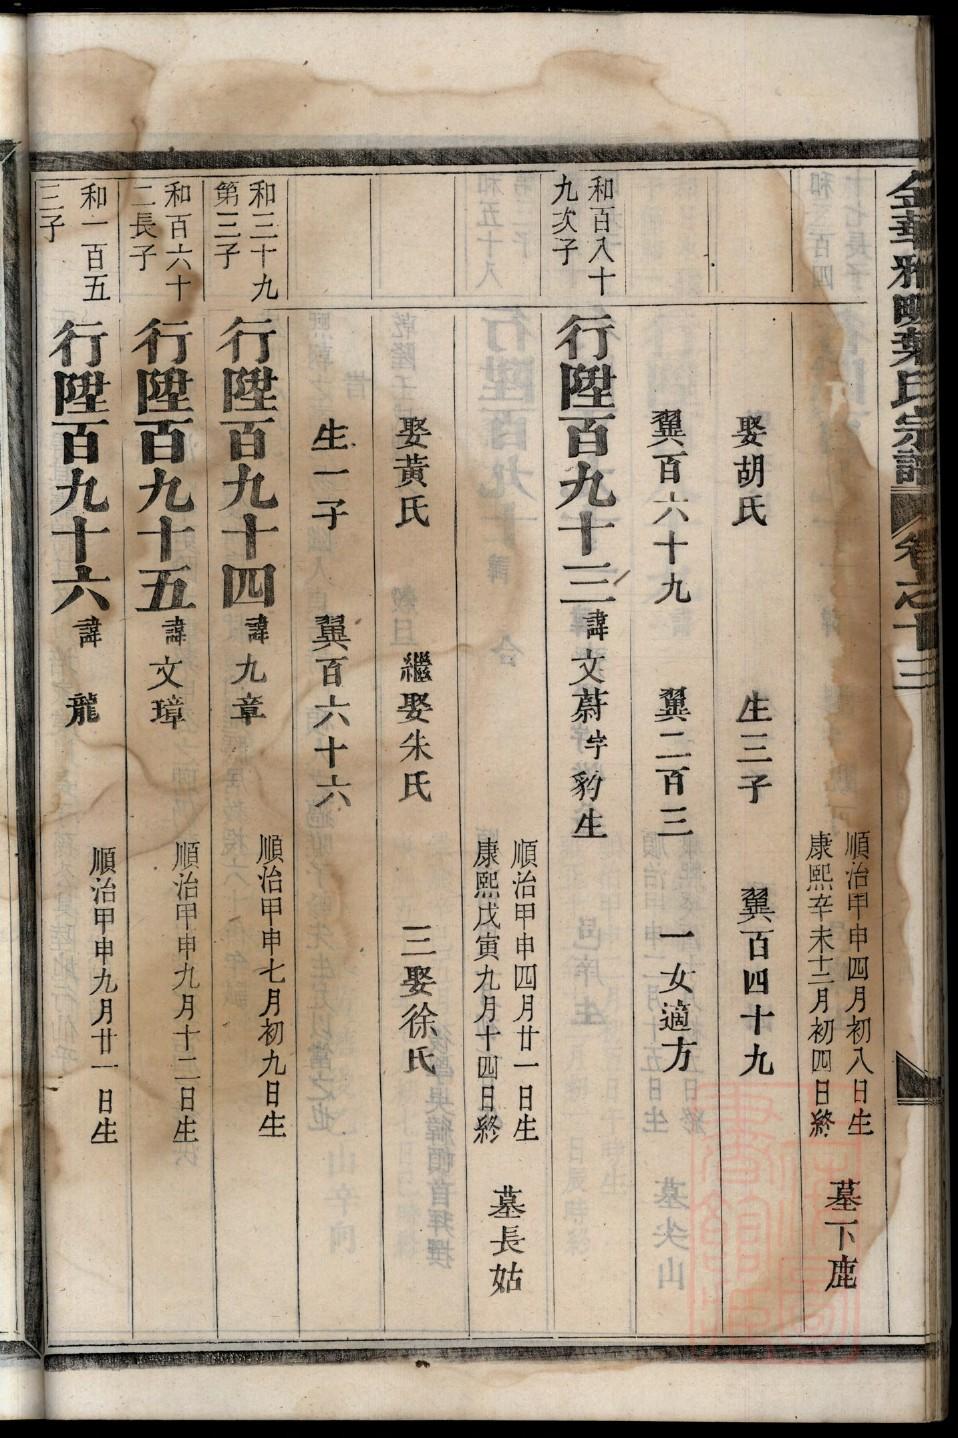 金華雅畈葉氏宗譜 卷之十三
順治甲申四月初八日生
康熙辛未十二月初四日終
墓下鹿
娶胡氏 生三子 翼百四十九
翼百六十九 翼二百三 一女適方
和百八十
九次子
行陞百九十三 諱文蔚 字豹生
順治甲申四月廿一日生
康熙戊寅九月十四日終
墓長姑
娶黃氏 繼娶朱氏 三娶徐氏
生一子 翼百六十六
和三十九
第三子
行陞百九十四 諱九章 順治甲申七月初九日生
和百六十
二長子
行陞百九十五 諱文璋 順治甲申九月十二日生
和一百五
三子
行陞百九十六 諱龍 順治甲申九月廿一日生